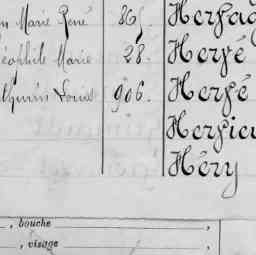 Marie René 865. Hersa
Théophile Marie 28. Hervé
Louis 906. Hervé
Hervieu
Héry
, bouche ,
, visage ,